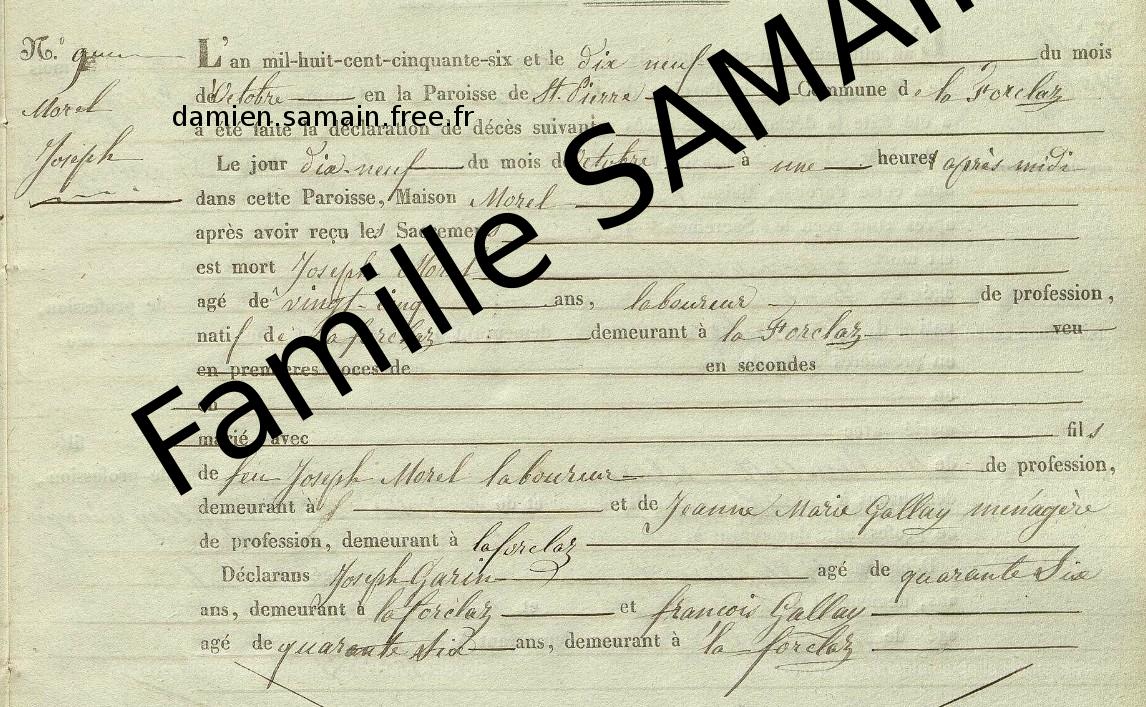 N.°
Morel
Joseph
L'an mil-huit-cent-cinquante-six et le dix neuf du mois
de Octobre en la Paroisse de St. Pierre Commune de la Forclaz
a été faite la déclaration de décès suivant
Le jour dix-neuf du mois de Octobre a une heures après midi
dans cette Paroisse, Maison Morel
après avoir reçu les Sacremens
est mort Joseph Morel
agé de vingt-cinq ans, laboureur de profession,
natif de laforclaz demeurant à la Forclaz veu
en premières noces de en secondes
marié avec fils
de feu Joseph Morel laboureur de profession,
demeurant à et de Jeanne Marie Gallay ménagère
de profession, demeurant à laforclaz
Déclarans Joseph Garin agé de quarante Six
ans, demeurant à laforclaz et francois Gallay
agé de quarante Six ans, demeurant à la forclaz
damien.samain.free.fr
Famille SAMAI